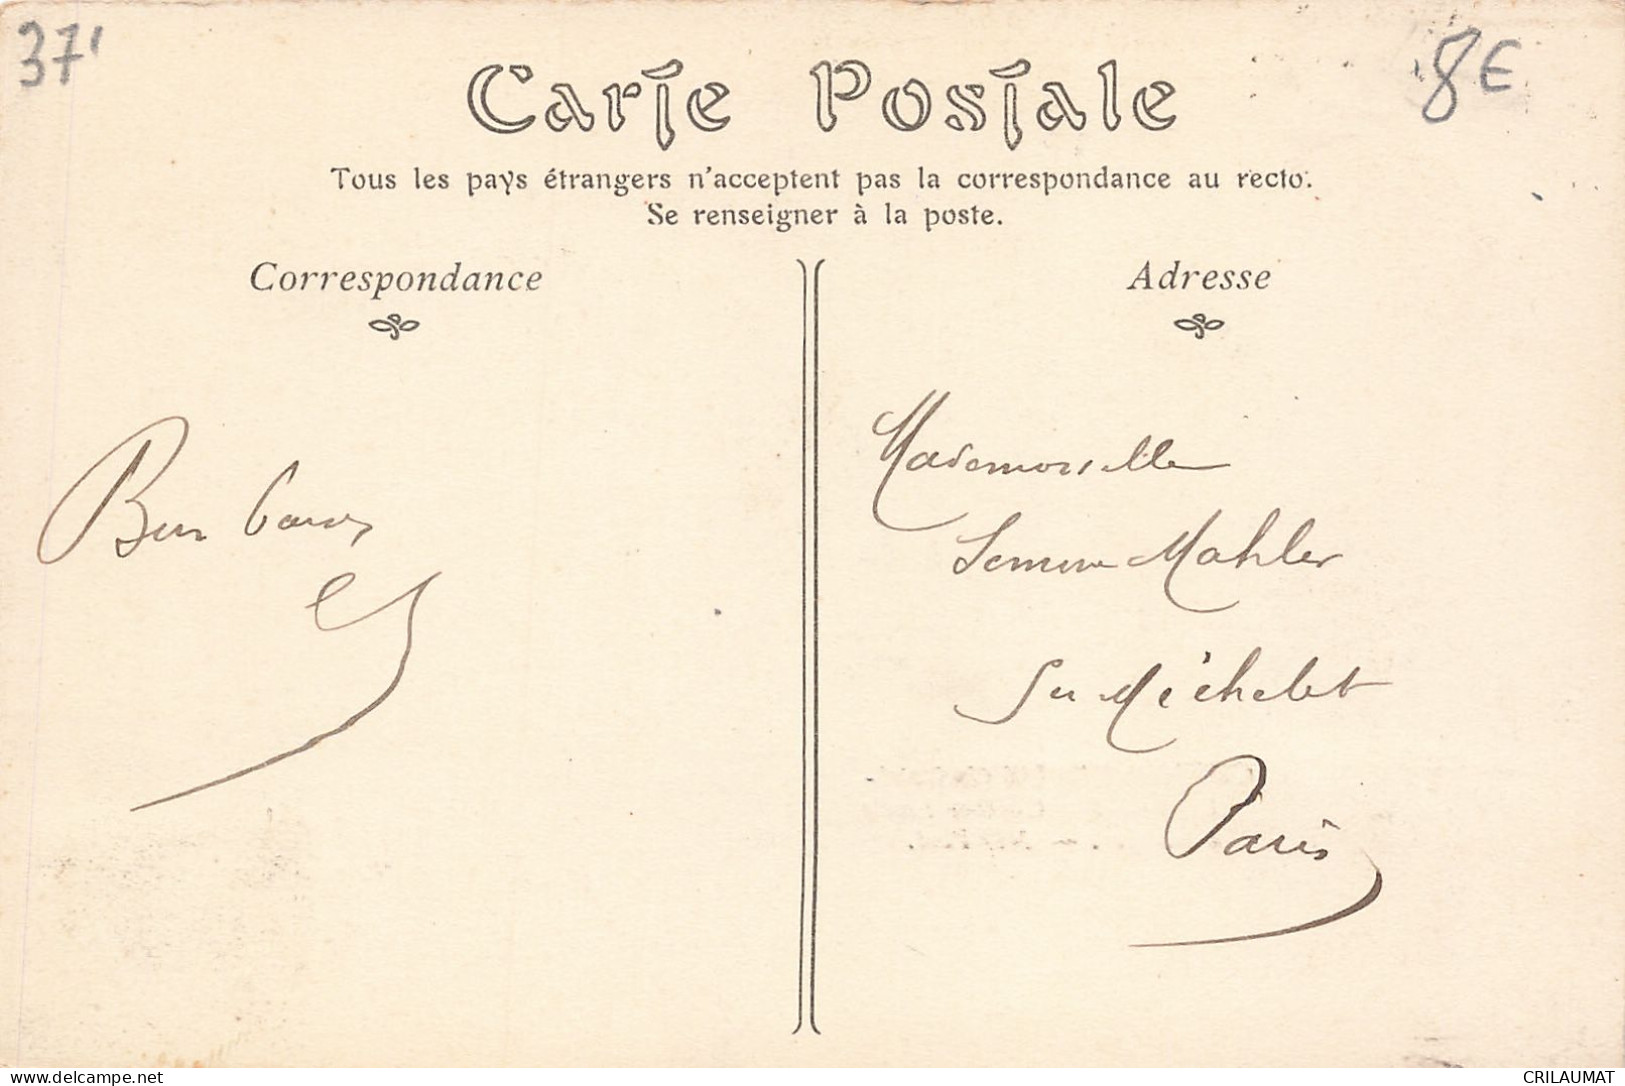 37'
8€
Carte Postale
Tous les pays étrangers n'acceptent pas la correspondance au recto.
Se renseigner à la poste.
Correspondance
Adresse
Mademoiselle
Mahler
Michelet
Paris
www.delcampe.net
CRILAUMAT